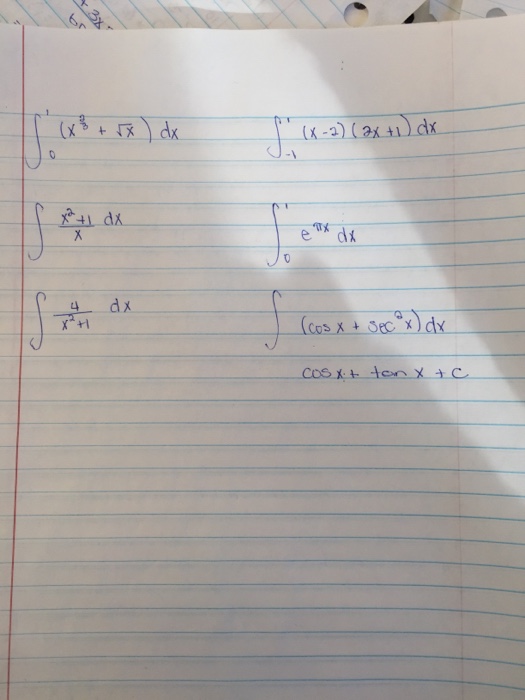 ∫₀¹ (x^(2/3) + √x) dx
∫₋₁¹ (x-2)(2x+1) dx
∫ (x²+1)/x dx
∫₀¹ e^(πx) dx
∫ 4/(x²+1) dx
∫ (cos x + sec²x) dx
cos x + tan x + C